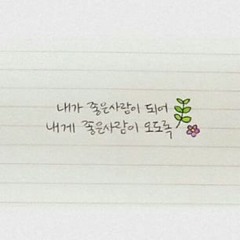 내가 좋은사람이 되어
내게 좋은사람이 오도록